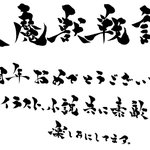 魔獣戦記
周年おめでとうござい
イラスト、小説 共に素敵
楽しみにしてます。